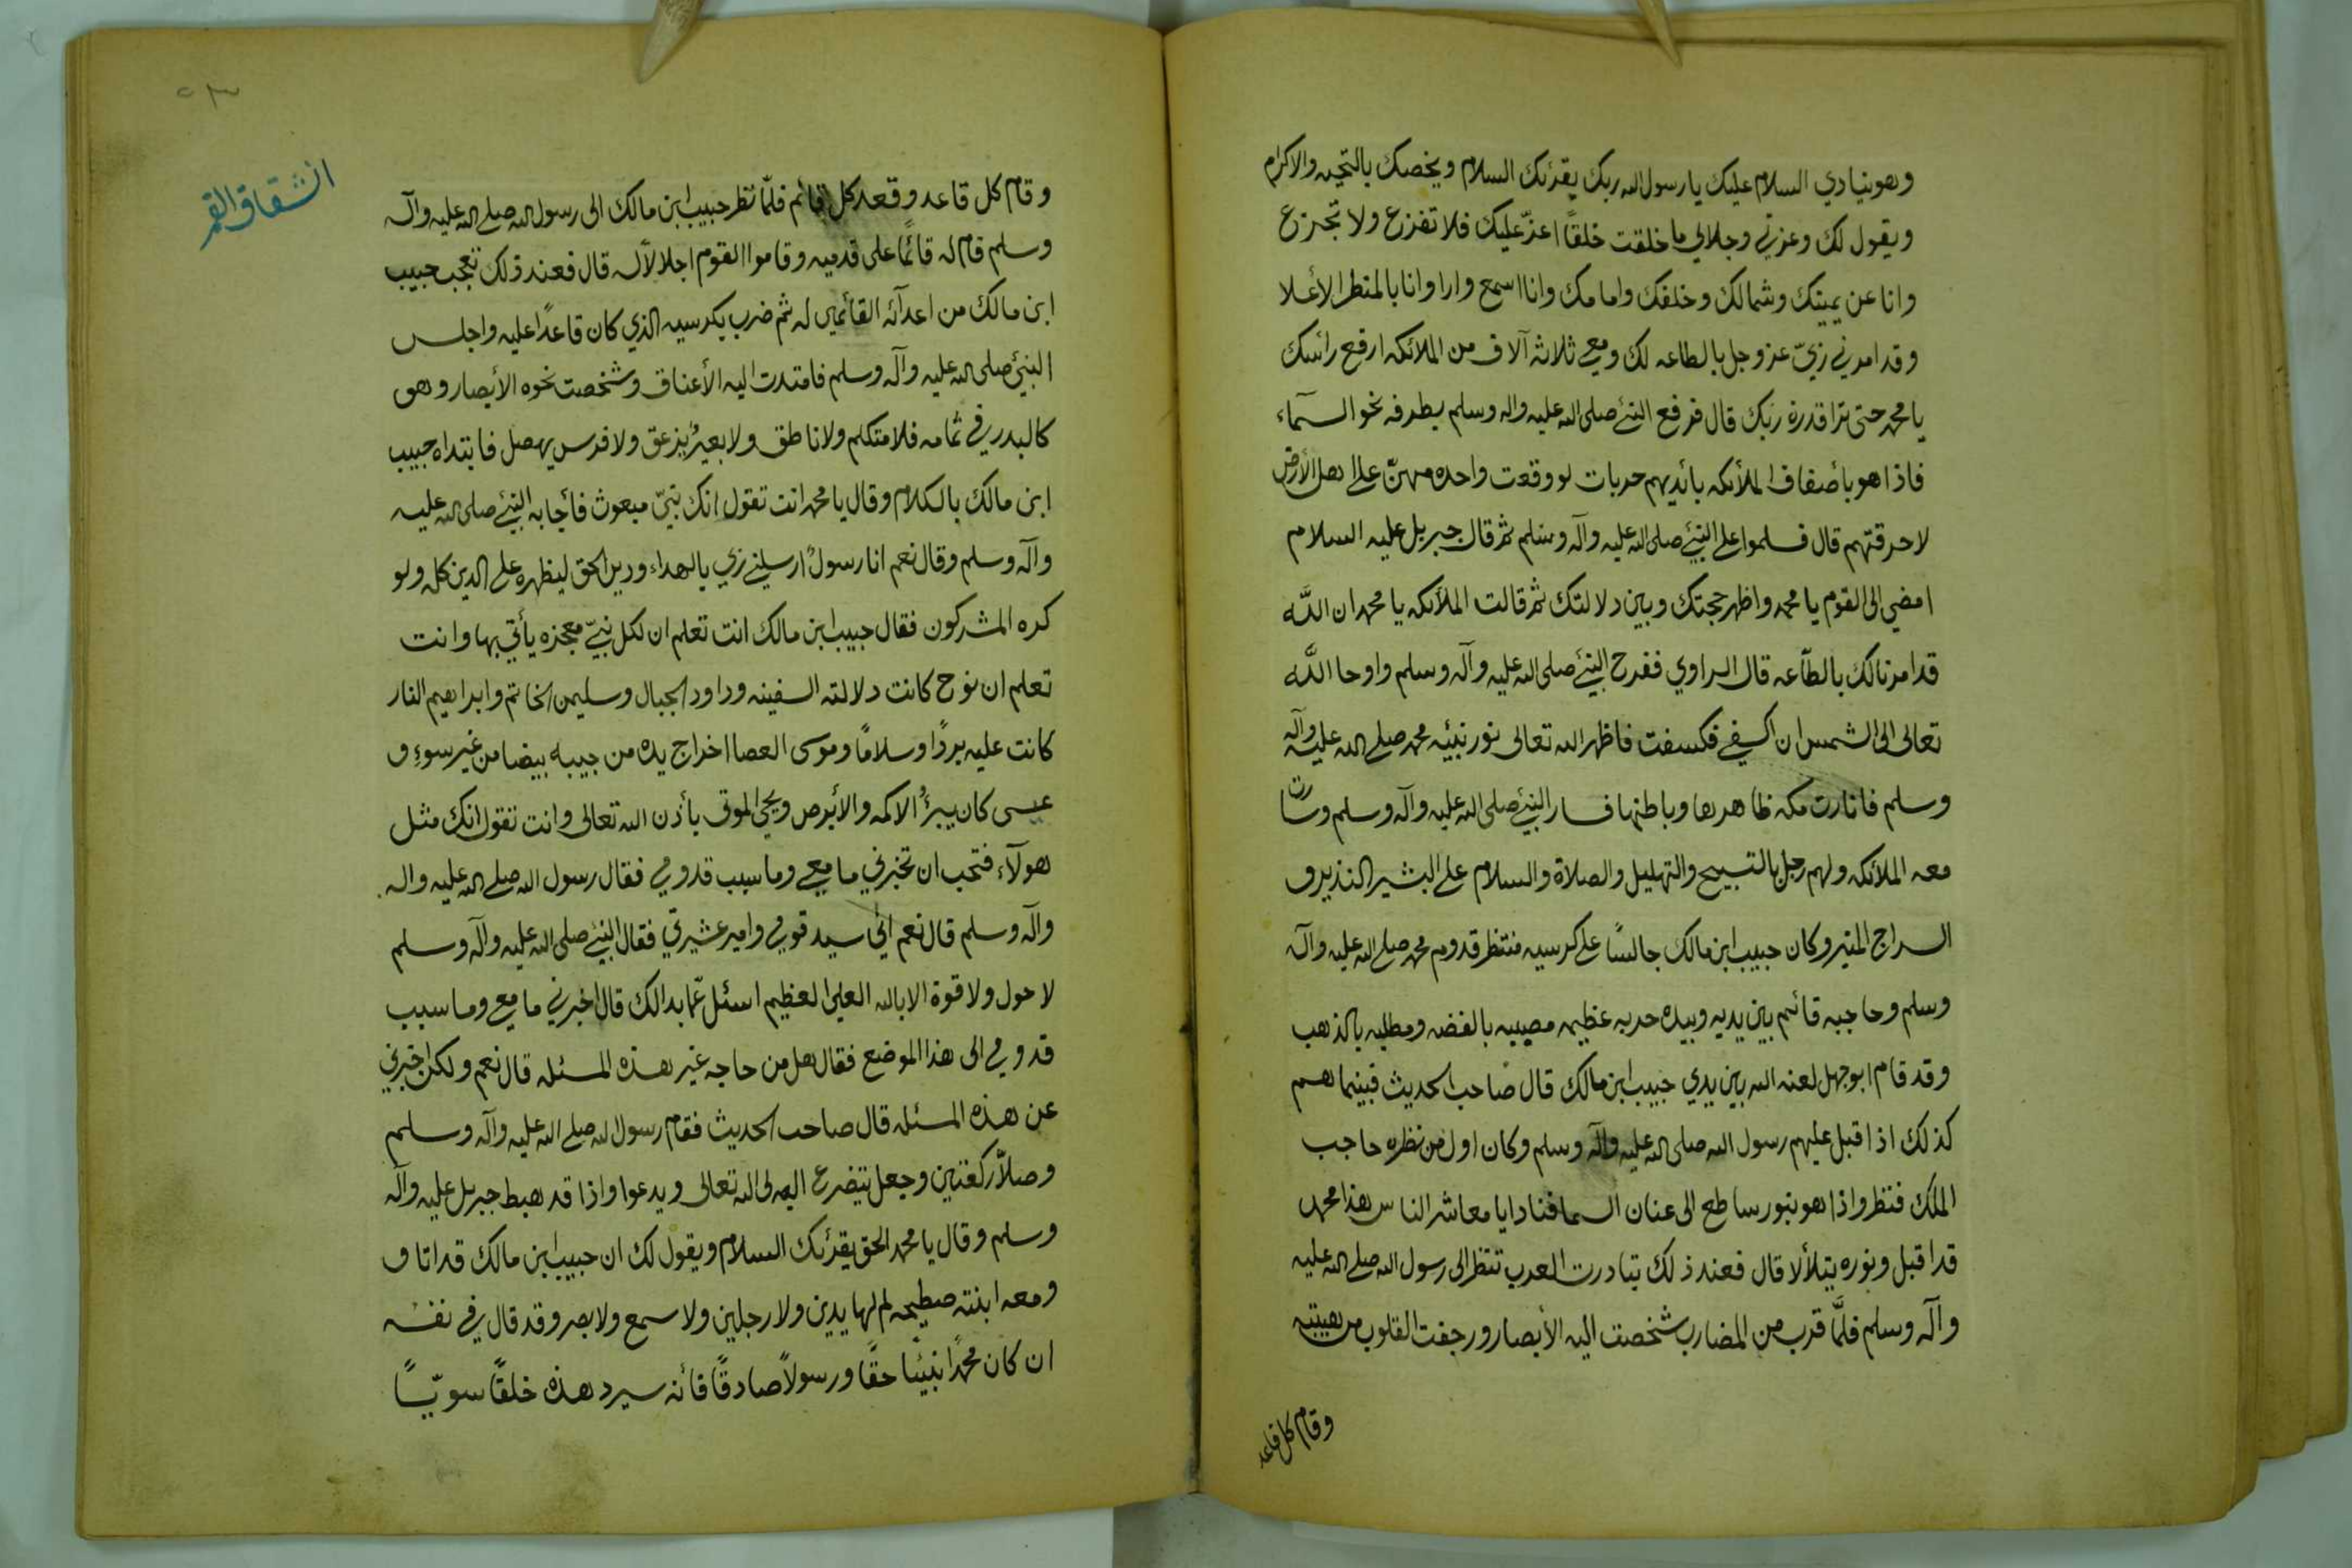 وهو ينادي السلام عليك يا رسول الله ربك يقرئك السلام ويخصك بالتحيه والاكرام
ويقول لك وعزتي وجلالي ما خلقت خلقاً اعزّ عليك فلا تفزع ولا تجزع
وانا عن يمينك وشمالك وخلفك وامامك وانا اسمع وارا وانا بالمنظر الأعلا
وقد امرني ربيّ عز وجل بالطاعه لك ومعي ثلاثة آلاف من الملائكه ارفع رأسك
يا محمد حتى ترا قدرة ربك قال فرفع النبئ صلى الله عليه واله وسلم بطرفه نحو السمآء
فاذا هو بأصفاف الملأئكه بأئديهم حربات لو وقعت واحده منهنّ على اهل الأرض
لاحرقتهم قال فسلموا على النبئ صلى الله عليه وآله وسلم ثم قال جبريل عليه السلام
امضي الى القوم يا محمد واظهر حجتك وبين دلالتك ثم قالت الملأئكه يا محمد ان اللّه
قد امرنا لك بالطّاعه قال الراوي ففرح النبئ صلى الله عليه وآله وسلم واوحا اللّه
تعالى الى الشمس ان اكسفي فكسفت فاظهر الله تعالى نور نبيّه محمد صلى الله عليه وآله
وسلم فانارت مكه ظاهرها وباطنها فسار النبئ صلى الله عليه وآله وسلم وسارت
معه الملائكه ولهم زجل بالتسبيح والتهليل والصلاة والسلام على البشير النذير و
السراج المنير وكان حبيب ابن مالك جالسًا على كرسيه منتظر قدوم محمد صلى الله عليه وآله
وسلم وحاجبه قائم بين يديه وبيده حربه عظيمه مصببه بالفضه ومطليه بالذهب
وقد قام ابو جهل لعنه الله بين يدي حبيب ابن مالك قال صاحب الحديث فبينما هم
كذلك اذا اقبل عليهم رسول الله صلى الله عليه وآله وسلم وكان اول من نظره حاجب
الملك فنظر واذا هو بنور ساطع الى عنان السما فنادا يا معاشر الناس هذا محمد
قد اقبل ونوره يتلألا قال فعند ذلك تبادرت العرب تنظر الى رسول الله صلى الله عليه
وآله وسلم فلمّا قرب من المضارب شخصت اليه الأبصار ورجفت القلوب من هيبته
وقام كل قاعد
انشقاق القمر
وقام كل قاعد وقعد كل قائم فلمّا نظر حبيب ابن مالك الى رسول الله صلى الله عليه وآله
وسلم قام له قائمًا على قدميه وقاموا القوم اجلالاً له قال فعند ذلك تعجب حبيب
ابن مالك من اعدآئه القائمين له ثم ضرب بكرسيه الذي كان قاعدًا عليه واجلس
النبئ صلى الله عليه وآله وسلم فامتدت اليه الأعناق وشخصت نحوه الأبصار وهو
كالبدر في تمامه فلا متكلم ولا ناطق ولا بعيرٌ يزعق ولا فرس يهصل فابتداه حبيب
ابن مالك بالكلام وقال يا محمد انت تقول انك نبيّ مبعوث فأجابه النبئ صلى الله عليه
وآله وسلم وقال نعم انا رسولٌ ارسلني ربي بالهداء ودين الحق ليظهره على الدين كله ولو
كره المشركون فقال حبيب ابن مالك انت تعلم ان لكل نبيّ معجزه يأتي بها وانت
تعلم ان نوح كانت دلالته السفينه وداود الجبال وسليمن الخاتم وابراهيم النار
كانت عليه بردًا وسلامًا وموسى العصا اخراج يده من جيبه بيضا من غير سوء و
عيسى كان يبرؤ الاكمه والأبرص ويحي الموتى بأذن الله تعالى وانت تقول انك مثل
هولآء فتحب ان تخبرني ما معي وما سبب قدومي فقال رسول الله صلى الله عليه واله
وآله وسلم قال نعم اني سيد قومي وامير عشيرتي فقال النبئ صلى الله عليه وآله وسلم
لا حول ولا قوة الا بالله العلي العظيم اسئل عمّا بدالك قال اخبرني ما معي وما سبب
قدومي الى هذا الموضع فقال هل من حاجه غير هذه المسئله قال نعم ولكن اخبرني
عن هذه المسئله قال صاحب الحديث فقام رسول الله صلى الله عليه وآله وسلم
وصلاّ ركعتين وجعل يتضرع الى الله تعالى ويدعوا واذا قد هبط جبريل عليه وآله
وسلم وقال يا محمد الحق يقرئك السلام ويقول لك ان حبيب ابن مالك قد اتا و
ومعه ابنته صطيحه لم لها يدين ولا رجلين ولا سمع ولا بصر وقد قال في نفسه
ان كان محمدًا نبيّا حقًا ورسولاً صادقًا فأنه سيرد هذه خلقًا سويّاً